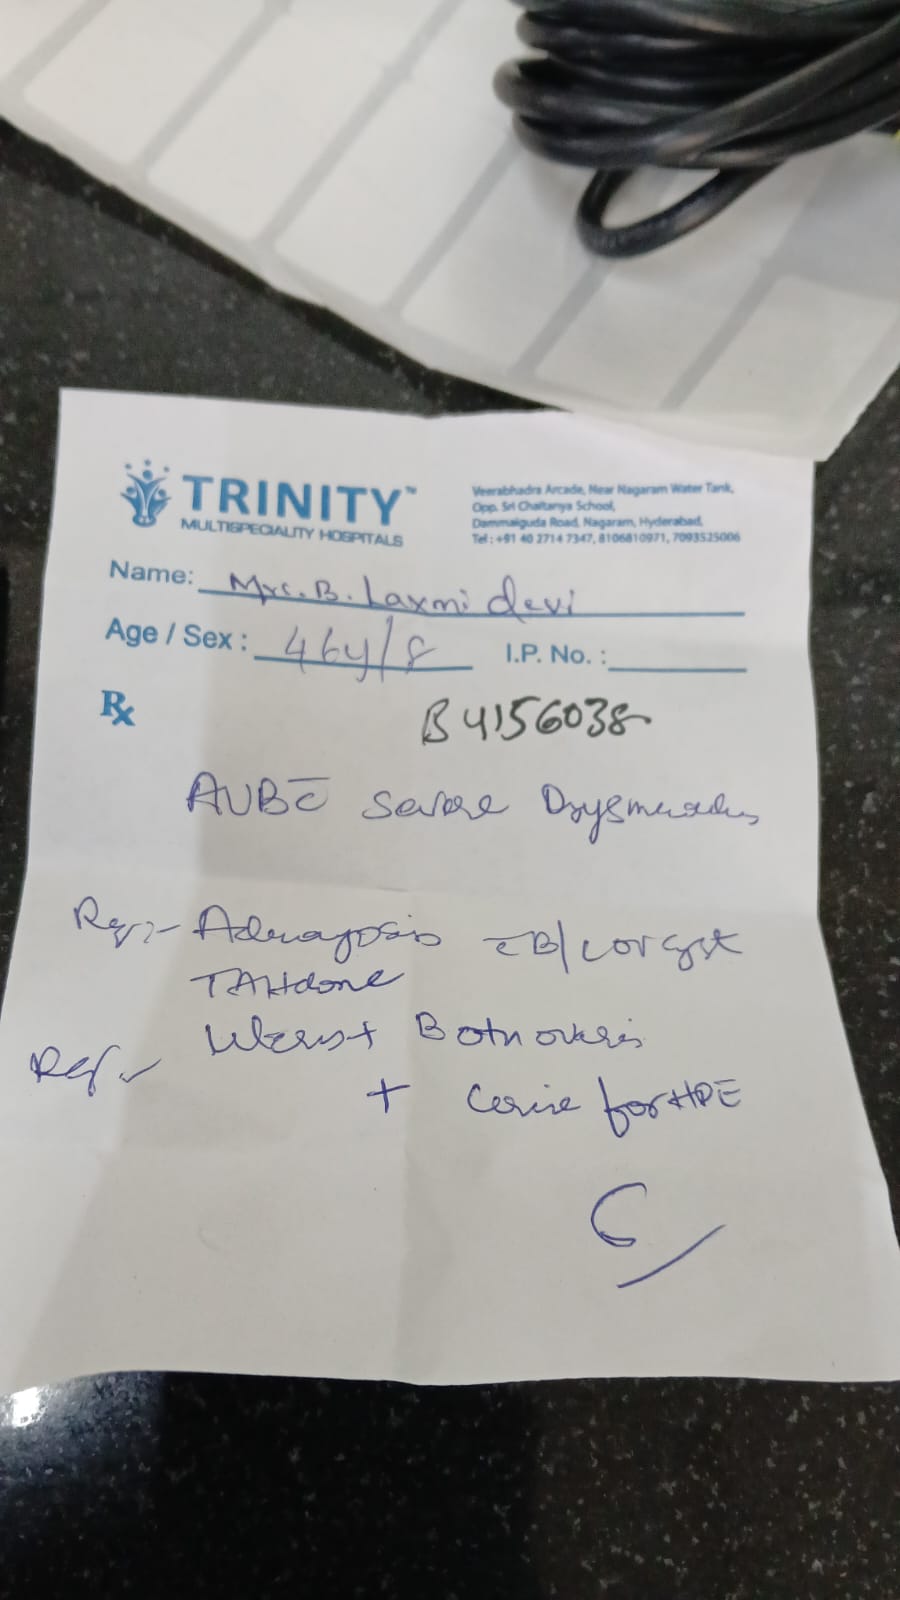 TRINITY™
MULTISPECIALITY HOSPITALS
Veerabhadra Arcade, Near Nagaram Water Tank,
Opp. Sri Chaitanya School,
Dammaiguda Road, Nagaram, Hyderabad,
Tel : +91 40 2714 7347, 8106810971, 7093525006
Name: Mrs. B. Laxmi devi
Age / Sex : 46y/F I.P. No. :
Rx
B4156038
AUB c̄ Severe
Adenomyosis c̄ B/L ov cyst
TAH done
Uterus + Both ovaries
+ Cervix for HPE